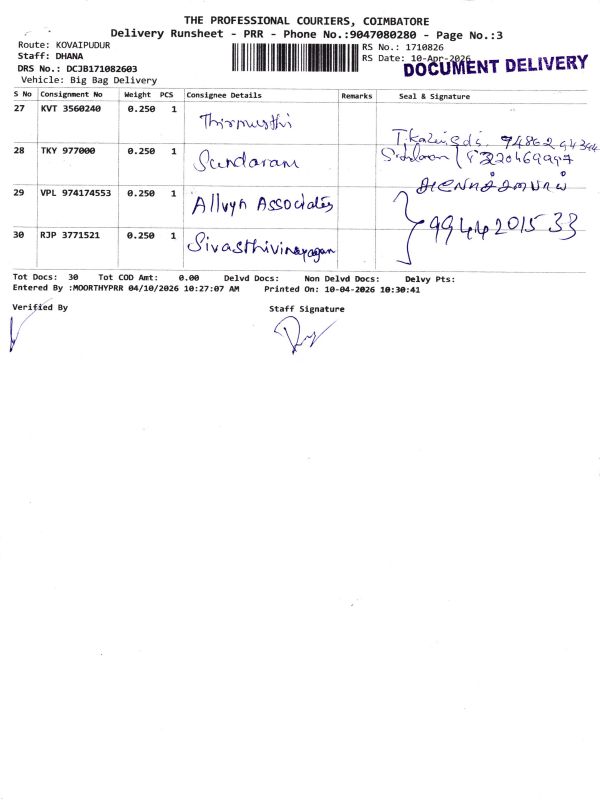 THE PROFESSIONAL COURIERS, COIMBATORE
Delivery Runsheet - PRR - Phone No.:9047080280 - Page No.:3
Route: KOVAIPUDUR
RS No.: 1710826
Staff: DHANA
RS Date: 10-Apr-2026
DRS No.: DCJB171082603
DOCUMENT DELIVERY
Vehicle: Big Bag Delivery
S No Consignment No Weight PCS Consignee Details Remarks Seal & Signature
27 KVT 3560240 0.250 1 Thirmusthi
28 TKY 977000 0.250 1 Sundaram
29 VPL 974174553 0.250 1 Allvyn Associates
30 RJP 3771521 0.250 1 Sivasthivinayagan
9944201533
Tot Docs: 30 Tot COD Amt: 0.00 Delvd Docs: Non Delvd Docs: Delvy Pts:
Entered By :MOORTHYPRR 04/10/2026 10:27:07 AM Printed On: 10-04-2026 10:30:41
Verified By Staff Signature